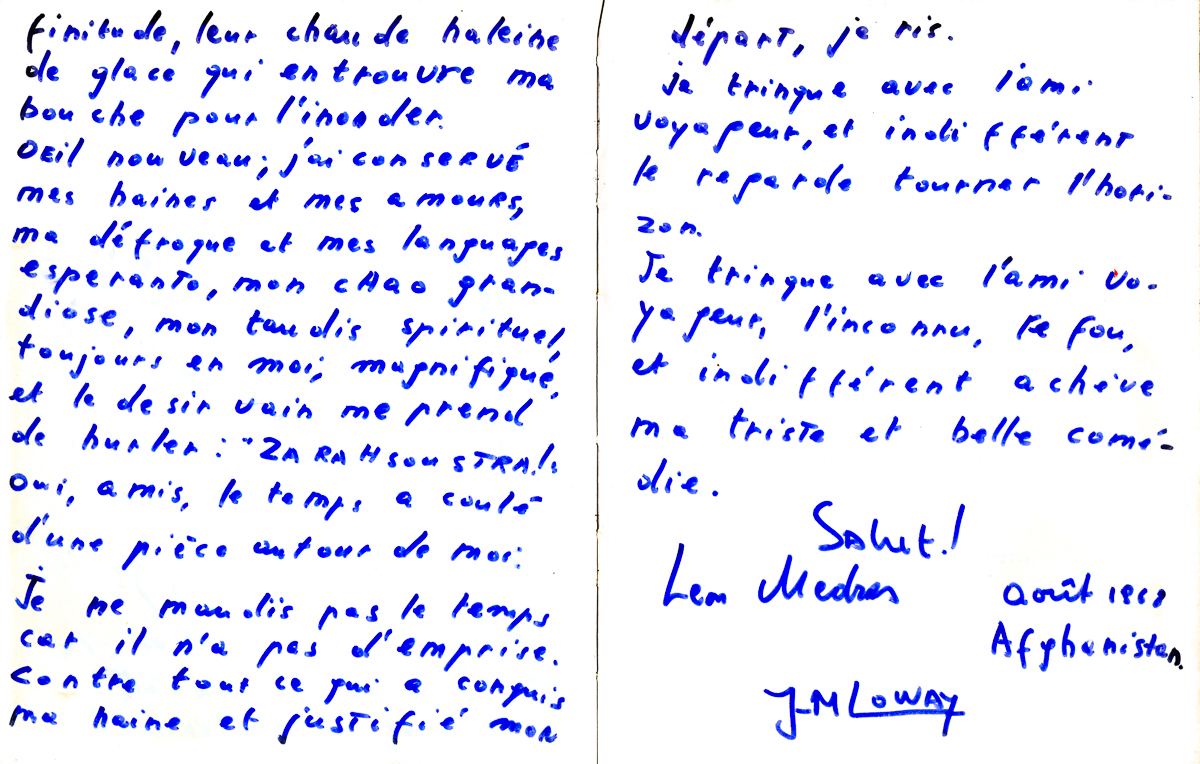 finitude, leur chaude haleine
de glace qui entrouvre ma
bouche pour l'inonder.
OEil nouveau; j'ai conSERVÉ
mes haines et mes amours,
ma défroque et mes languages
esperanto, mon cHao gran-
diose, mon taudis spirituel,
toujours en moi, magnifique,
et le desir vain me prend
de hurler : "ZARAHsouSTRA!"
Oui, amis, le temps a coulé
d'une pièce autour de moi.
Je ne maudis pas le temps
car il n'a pas d'emprise.
Contre tout ce qui a conquis
ma haine et justifié mon
départ, je ris.
je trinque avec l'ami
voyageur, et indifférent
le regarde tourner l'hori-
zon.
Je trinque avec l'ami vo-
yageur, l'inconnu, le fou,
et indifférent achève
ma triste et belle comé-
die.
Salut!
Leon Medres
août 1968
Afghanistan.
J-M LOWAY